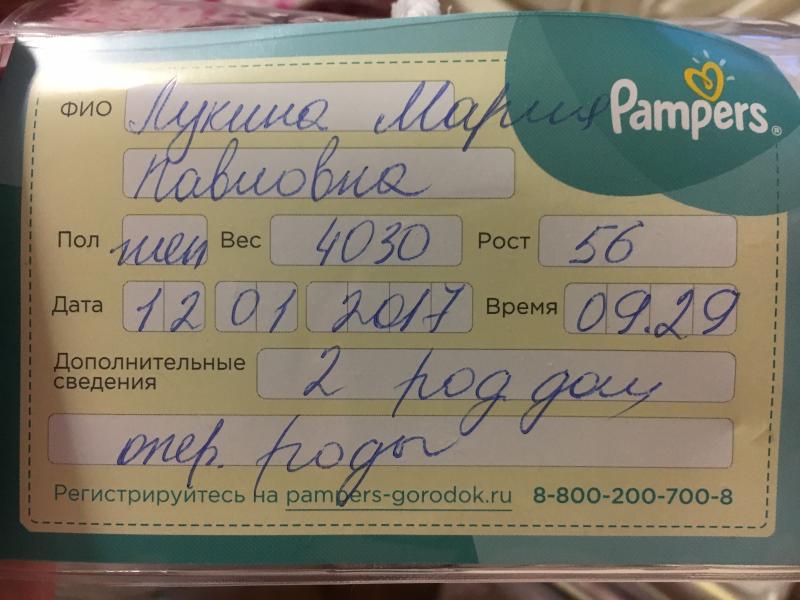 Pampers®
ФИО Лукина Мария
Павловна
Пол жен Вес 4030 Рост 56
Дата 12 01 2017 Время 09.29
Дополнительные сведения 2 род дом
опер. роды
Регистрируйтесь на pampers-gorodok.ru 8-800-200-700-8